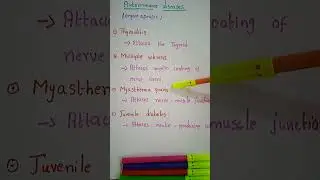 Autoimmune diseases
(organ specific)
Thyroiditis
→ Attacks the Thyroid
Multiple sclerosis
→ Attacks myelin coating of
nerve
Myasthenia gravis
→ Attacks nerve - muscle junction
Juvenile diabetes
→ Attacks insulin - producing
Myasthe
→ Attac
muscle junctio
Juvenile